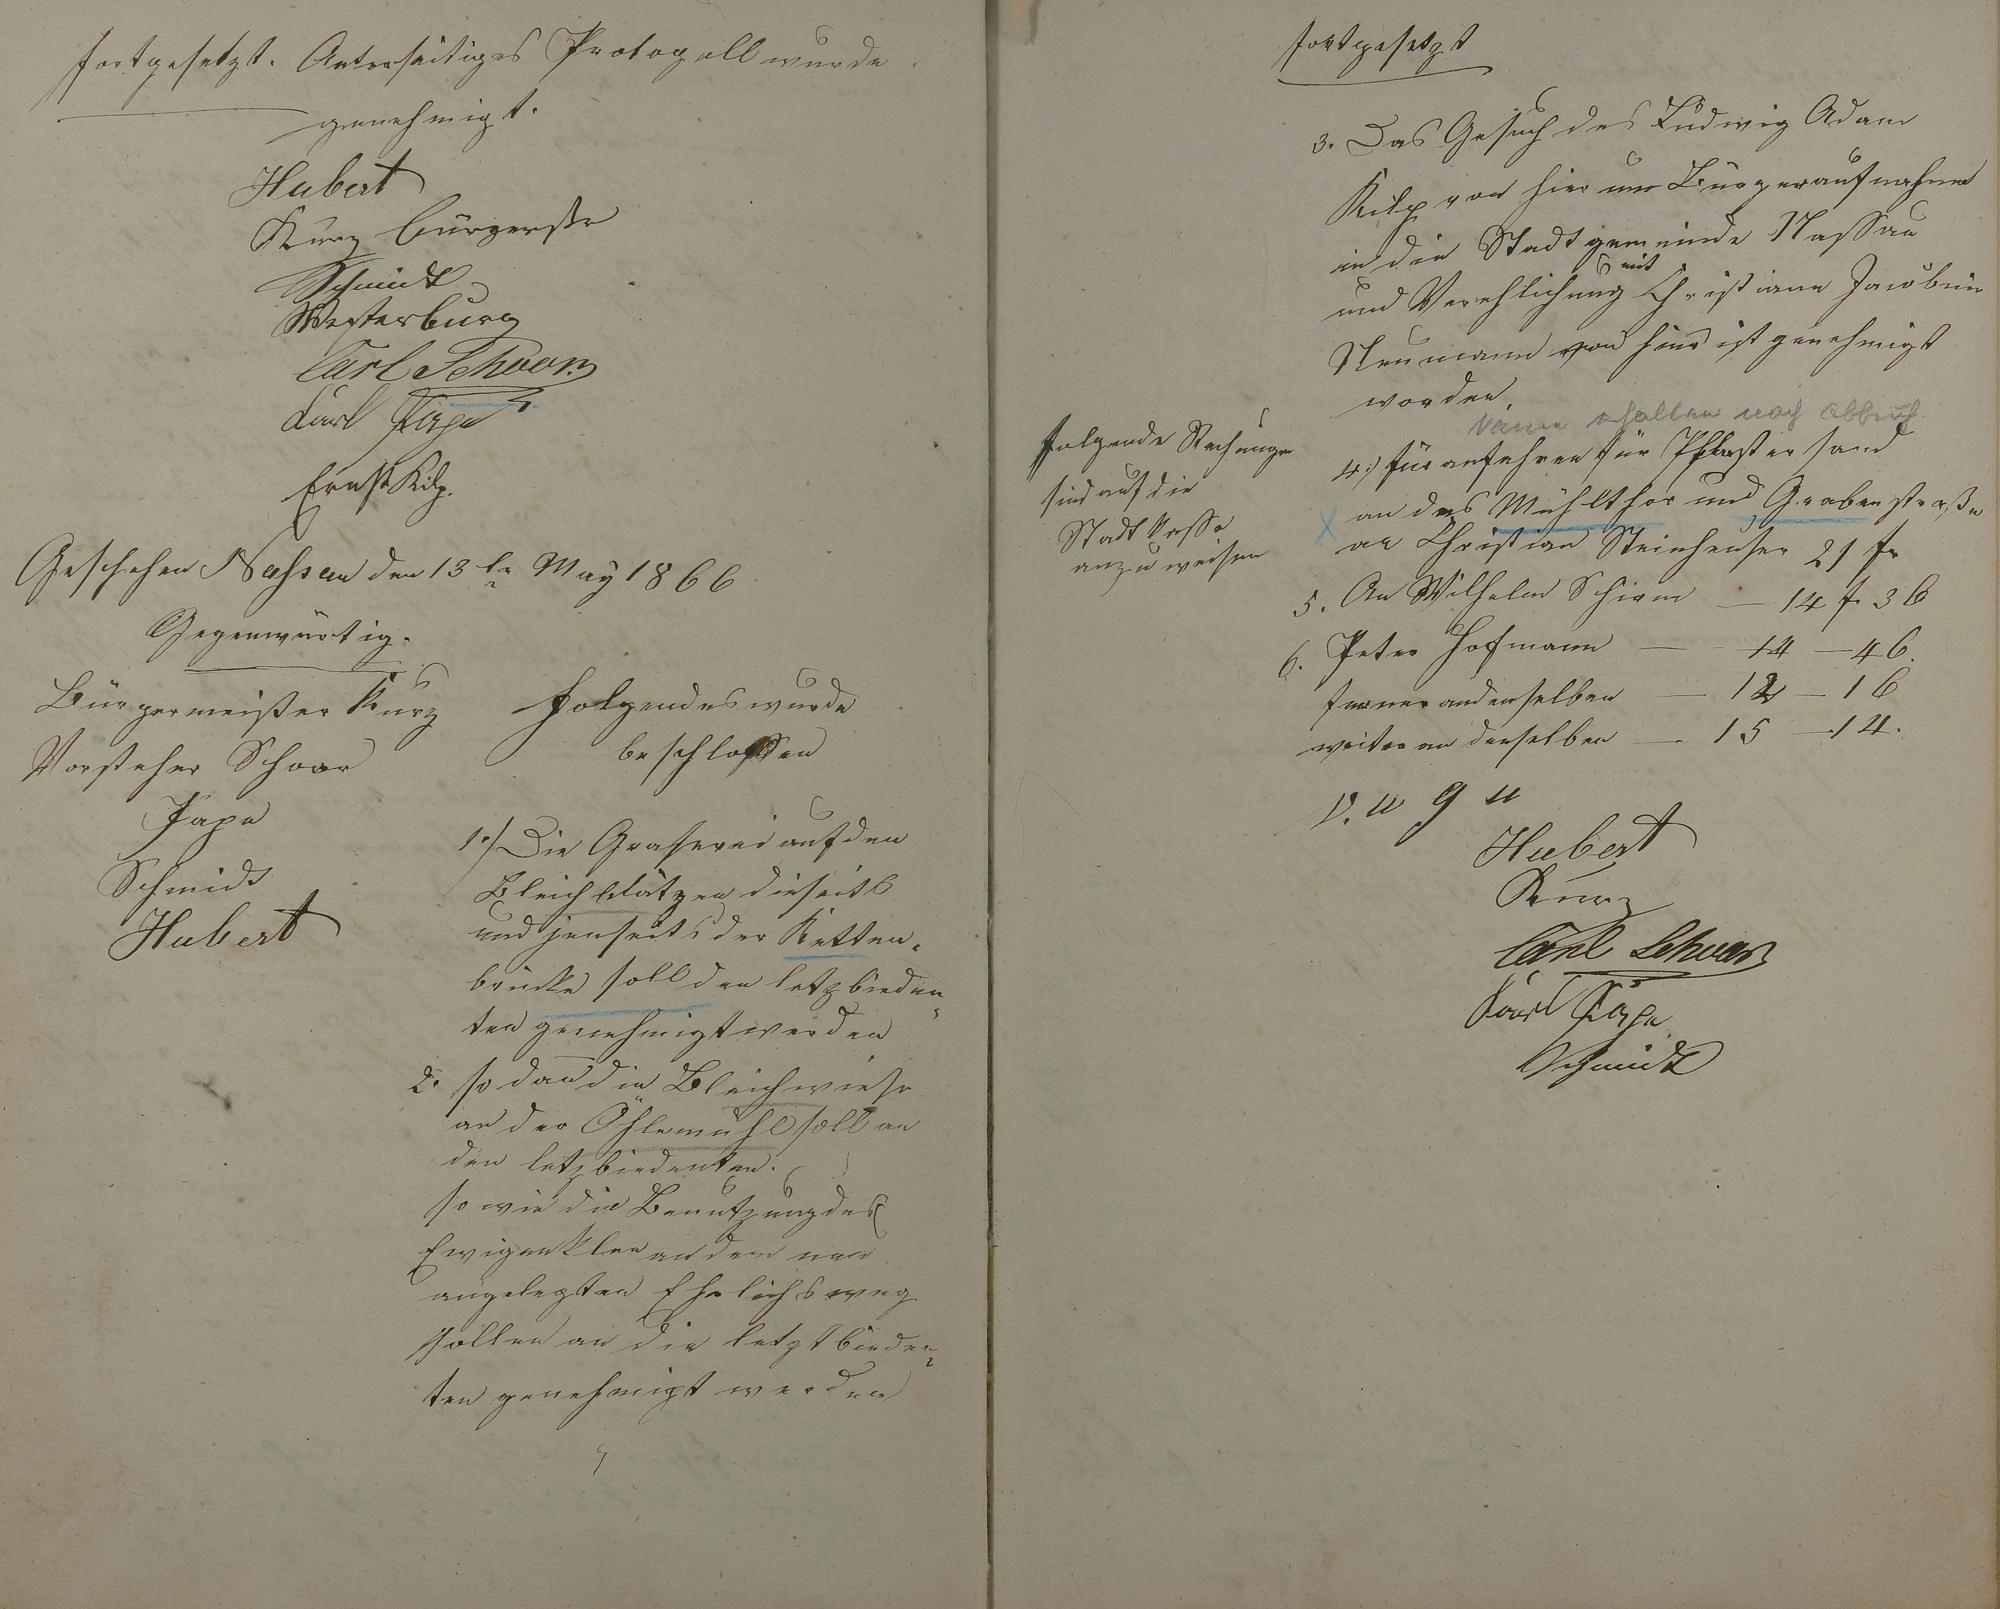 fortgesetzt. Anterseitiges Protogoll wurde
genehmigt.
Hubert
Kurz Bürgermstr
Schmidt
Westerburg
Carl Schvarz
Karl Pape
Ernst Kilp.
Geschehen Nassau den 13 te May 1866
Gegenwärtig.
Bürgermeister Kurz
Vorsteher Schvar
Pape
Schmidt
Hubert
Folgendes wurde
beschlossen
1.) Die Graserei auf den
Bleichplätzen dieseits
und jenseits der Ketten-
brücke soll den letzbieden-
ten genehmigt werden
2. so dan die Bleichwiese
an der Öhlemühl soll an
den letzbiedenten.
so wie die Benutzung des
Ewigenklee an dem neu
angelegten Ehrlichsweg
sollen an die letztbieden-
ten genehmigt werden
fortgesetzt
3. Das Gesuch des Ludwig Adam
Kilp von hier um Bürgeraufnahme
in die Stadtgemeinde Nassau
und Verehlichung mit Christiane Jacobine
Neumann von hier ist genehmigt
worden.
Folgende Rechungen
sind auf die
Stadtkasse
anzuweisen
4.) für anfahren für Pflastersand
an das Mühlthor und Grabenstraße
an Christian Steinheuser 21 fr
5. An Wilhelm Schirm — 14 f 36
6. Peter Hofmann — 14 — 46.
ferner an denselben — 12 — 16
weiter an denselben — 15 — 14.
V. u g u
Hubert
Kurz
Carl Schvarz
Karl Pape
Schmidt